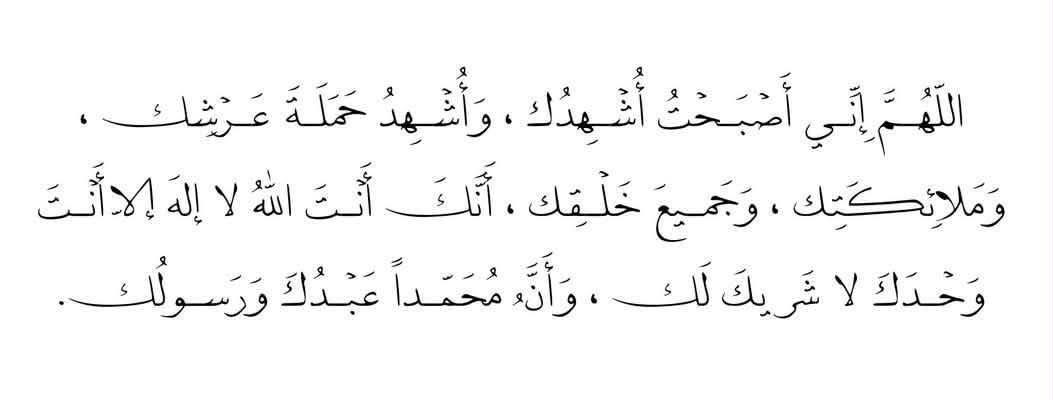 اللّهُـمَّ إِنِّـي أَصْبَـحْتُ أُشْـهِدُك ، وَأُشْـهِدُ حَمَلَـةَ عَـرْشِك ،
وَمَلائِكَتِك ، وَجَمِـيعَ خَلْـقِك ، أَنَّكَ أَنْـتَ اللهُ لا إلهَ إلاّ أَنْـتَ
وَحْـدَكَ لا شَريكَ لَك ، وَأَنَّ مُحَمّـداً عَبْـدُكَ وَرَسـولُك .